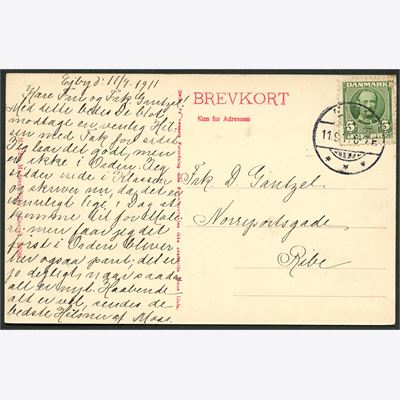 Egby d: 11/9 1911
Kære Fru og Frk Gäntzel!
Med dette bedes De blot
modtage en venlig Hil-
sen med Tak for sidst.
Jeg har det godt, men
er ikke i Orden. Jeg
sidder inde i Klassen
og skriver nu, da det er
umuligt lige i Dag at
komme til
men faar jeg det
først i Orden bliver
her ogsaa pænt; det er
jo dejligt, naar saadan
alt er nyt. Haabende
alt er vel, sendes de
bedste Hilsner af
BREVKORT
Kun for Adressen
DANMARK
5 5
11.9.
Frk D. Gäntzel
Norreportsgade
Ribe